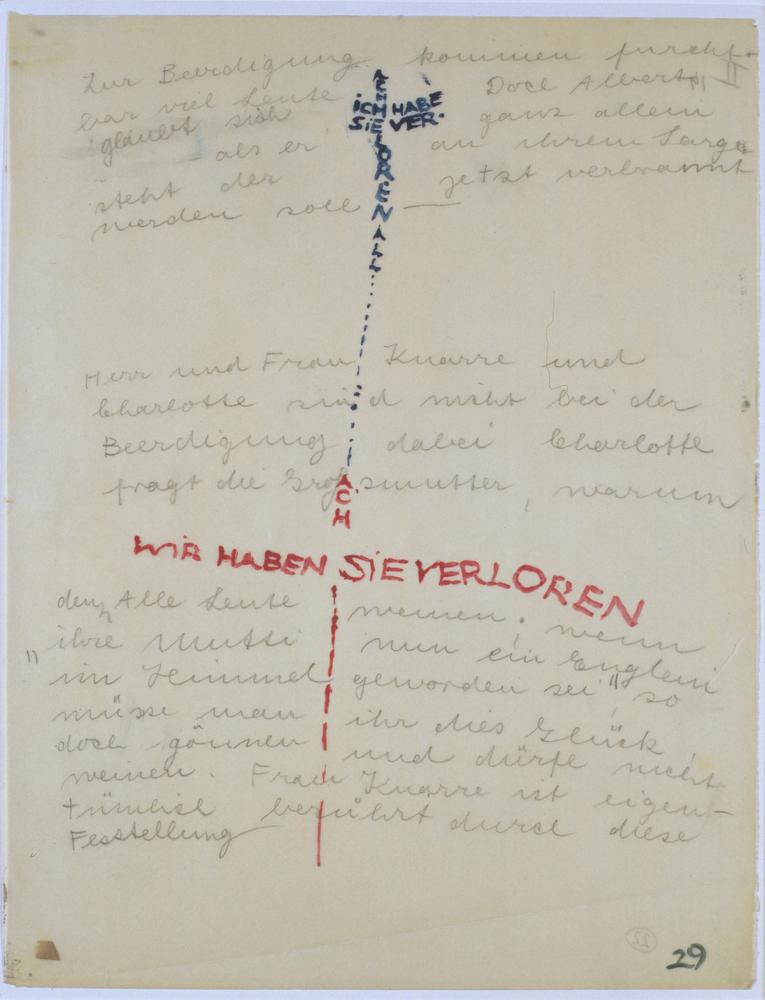 Zur Beerdigung kommen furcht-
bar viel Leute Doch Albert II
glaubt sich ganz allein
als er an ihrem Sarge
steht der jetzt verbrannt
werden soll —
ACH
ICH HABE
SIE VER-
LOREN
ALL
Herr und Frau Knarre und
Charlotte sind nicht bei der
Beerdigung dabei Charlotte
fragt die Großmutter, warum
ACH
WIR HABEN SIE VERLOREN
denn Alle Leute weinen, wenn
ihre Mutti nun ein Englein
"im Himmel geworden sei", so
müsse man ihr dies Glück
doch gönnen und dürfe nicht
weinen. Frau Knarre ist eigen-
tümlich berührt durch diese
Festellung
22
29